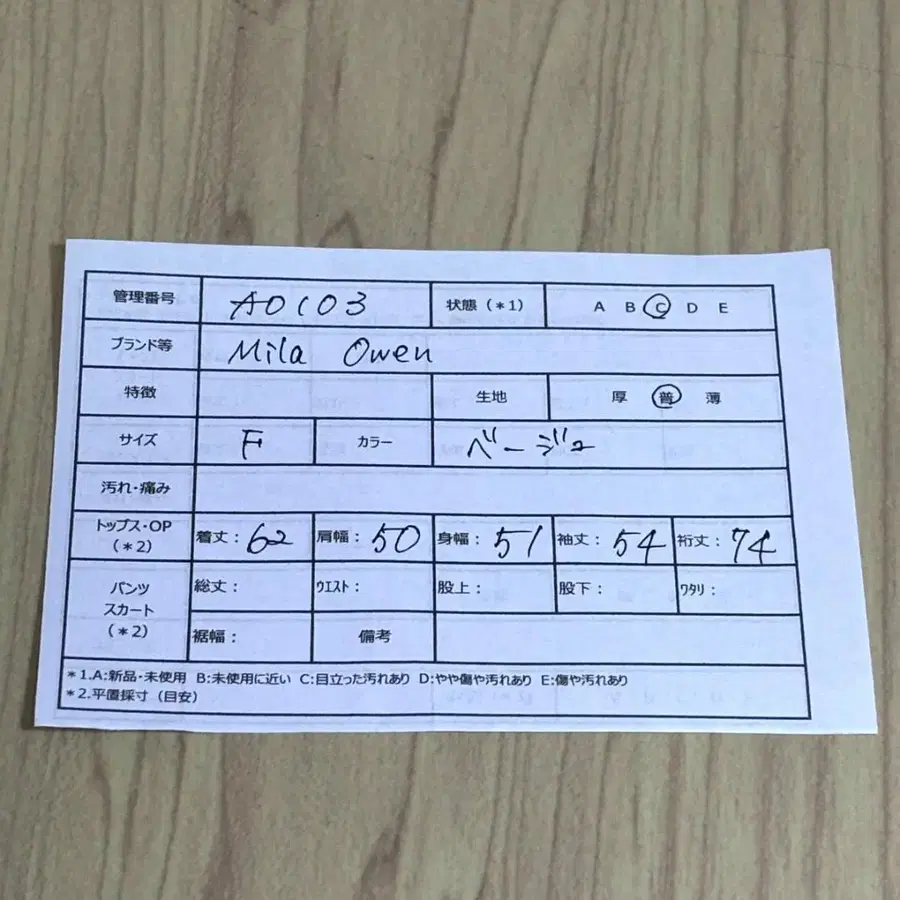 管理番号 A0103 状態（*1） A B C D E
ブランド等 Mila Owen
特徴 生地 厚 普 薄
サイズ F カラー ベージュ
汚れ・痛み
トップス・OP（*2） 着丈：62 肩幅：50 身幅：51 袖丈：54 裄丈：74
パンツ 総丈： ウエスト： 股上： 股下： ワタリ：
スカート
（*2） 裾幅： 備考
*1.A:新品・未使用 B:未使用に近い C:目立った汚れあり D:やや傷や汚れあり E:傷や汚れあり
*2.平置採寸（目安）